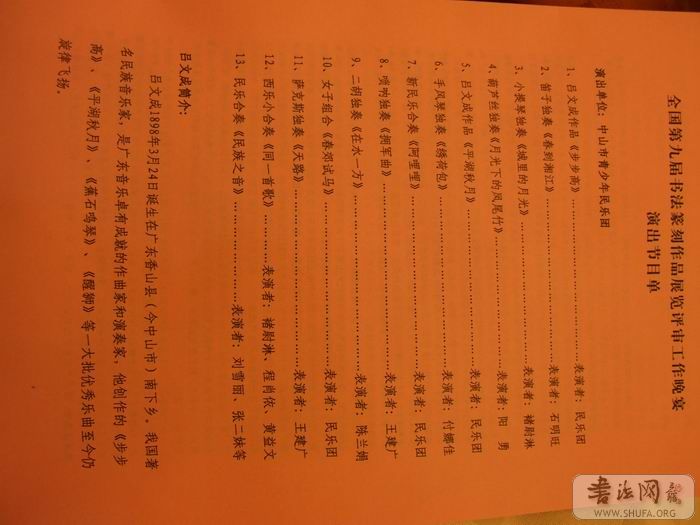 全国第九届书法篆刻作品展览评审工作晚宴
演出节目单
演出单位：中山市青少年民乐团
1、吕文成作品《步步高》……………………表演者：民乐团
2、笛子独奏《春到湘江》……………………表演者：石明旺
3、小提琴独奏《城里的月光》………………表演者：褚尉淋
4、葫芦丝独奏《月光下的凤尾竹》…………表演者：阳 勇
5、吕文成作品《平湖秋月》…………………表演者：民乐团
6、手风琴独奏《绣荷包》……………………表演者：付娜佳
7、新民乐合奏《阿哩哩》……………………表演者：民乐团
8、唢呐独奏《拥军曲》………………………表演者：王建广
9、二胡独奏《在水一方》……………………表演者：陈兰娟
10、女子组合《春郊试马》……………………表演者：民乐团
11、萨克斯独奏《天路》………………………表演者：王建广
12、西乐小合奏《同一首歌》………表演者：褚尉淋、程肖依、黄益文
13、民乐合奏《民族之音》…………………表演者：刘雪丽、张二妹等
吕文成简介：
吕文成1898年3月24日诞生在广东香山县（今中山市）南下乡。我国著
名民族音乐家，是广东音乐卓有成就的作曲家和演奏家，他创作的《步步
高》、《平湖秋月》、《蕉石鸣琴》、《醒狮》等一大批优秀乐曲至今仍
旋律飞扬。
书法网
WWW.SHUFA.ORG